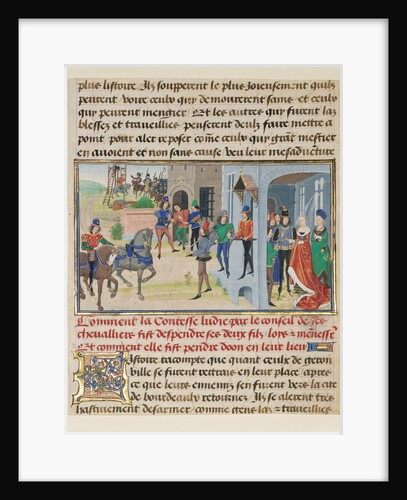 plus listoire Ilz soupperent le plus Joieusement quilz
peurent voire ceulx quy demourerent sains et ceulx
quy peurent mengier Et les autres quy furent la
blessez et travueilliez penserent deulz faire mettre a
point pour aler reposer come ceulx quy grant mestier
en avoient et non sans cause veu leur mesaduenture
Comment la Contesse ludie par le conseil de ses
cheualliers fist despendre ses deux filz lors
Et comment elle fist pendre doon en leur lieu
Istoire racompte que quant ceulx de geron
ville se furent retrais en leur place apres
ce que leurs ennemis sen furent vers la cite
de bourdeaulx retournez Ilz se alerent tres
hastiuement desarmer comme gens las et traueilliez